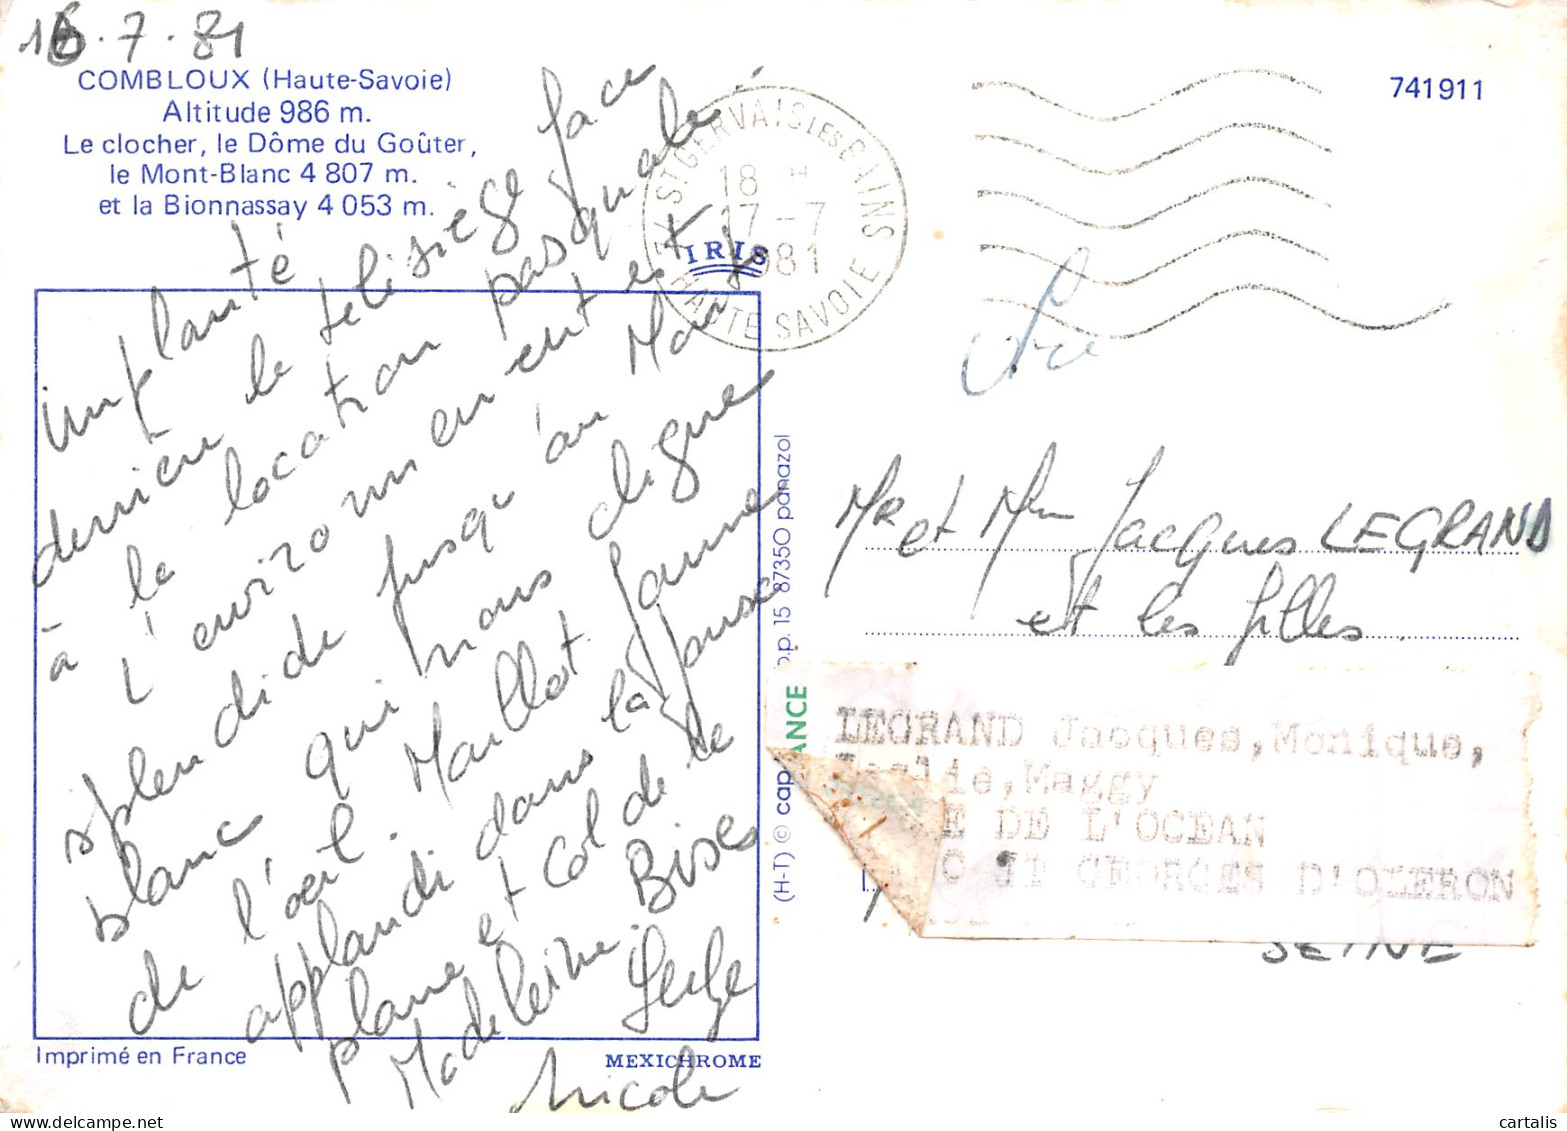 16.7.81
COMBLOUX (Haute-Savoie)
Altitude 986 m.
Le clocher, le Dôme du Goûter,
le Mont-Blanc 4 807 m.
et la Bionnassay 4 053 m.
implanté
derrière le télésiège face
à la location pasquale !
L'environnement est
splendide jusqu'au Mont
blanc qui nous cligne
de l'oeil. Maillot jaune
applaudi dans la fausse
plaine et Col de la
Madeleine. Bises
Serge
Nicole
IRIS
ST GERVAIS LES BAINS
18 H
17-7
1981
HAUTE SAVOIE
741911
Mr et Mme Jacques LEGRAND
et les filles.
LEGRAND Jacques, Monique,
lie, Maggy
E DE L'OCEAN
ST GEORGES D'OLERON
SEINE
(H-T) © cap
ANCE
b.p. 15 87350 panazol
Imprimé en France
MEXICHROME
cartalis